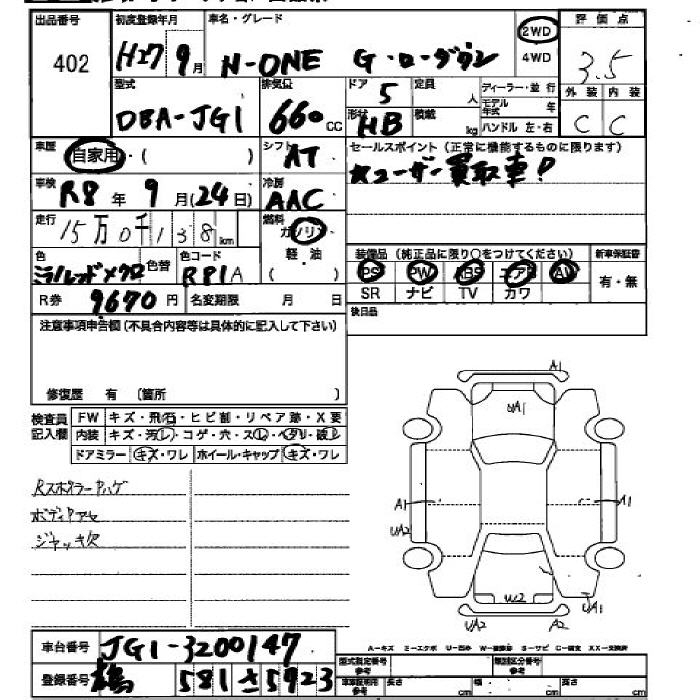 出品番号 402
初度登録年月 H27 9月
車名・グレード N-ONE G・ローダウン
2WD
4WD
評価点 3.5
外装 内装
C C
型式 DBA-JG1
排気量 660 CC
ドア 5
形状 HB
定員 人
積載 kg
ディーラー・並行
モデル年式 年
ハンドル 左・右
車歴 自家用・( )
シフト AT
セールスポイント (正常に機能するものに限ります)
★ユーザー買取車!
車検 R8年 9月(24日)
冷房 AAC
走行 15万0千138km
燃料 ガソリン
軽・油
( )
色 ミラノレッドメタクロ
色替
色コード R81A
R券 9670円
名変期限 月 日
装備品 (純正品に限り○をつけてください)
新車保証書
PS PW ABS エアB AW
有・無
SR ナビ TV カワ
後日品
注意事項申告欄(不具合内容等は具体的に記入して下さい)
修復歴 有 (箇所 )
検査員記入欄
FW キズ・飛石・ヒビ割・リペア跡・X要
内装 キズ・汚レ・コゲ・穴・スレ・ヘタリ・破レ
ドアミラー キズ・ワレ ホイール・キャップ キズ・ワレ
Rスポイラーハゲ
ボディアセ
ジャッキ欠
A1
UA1
A1
A1
UA2
W2
UA1
UA2
A2
A-キズ ミ-エクボ U-凹み
車台番号 JG1-3200147
登録番号 581 さ 5923
型式指定番号 参考
類別区分番号 参考
長さ cm
幅 cm
高さ cm